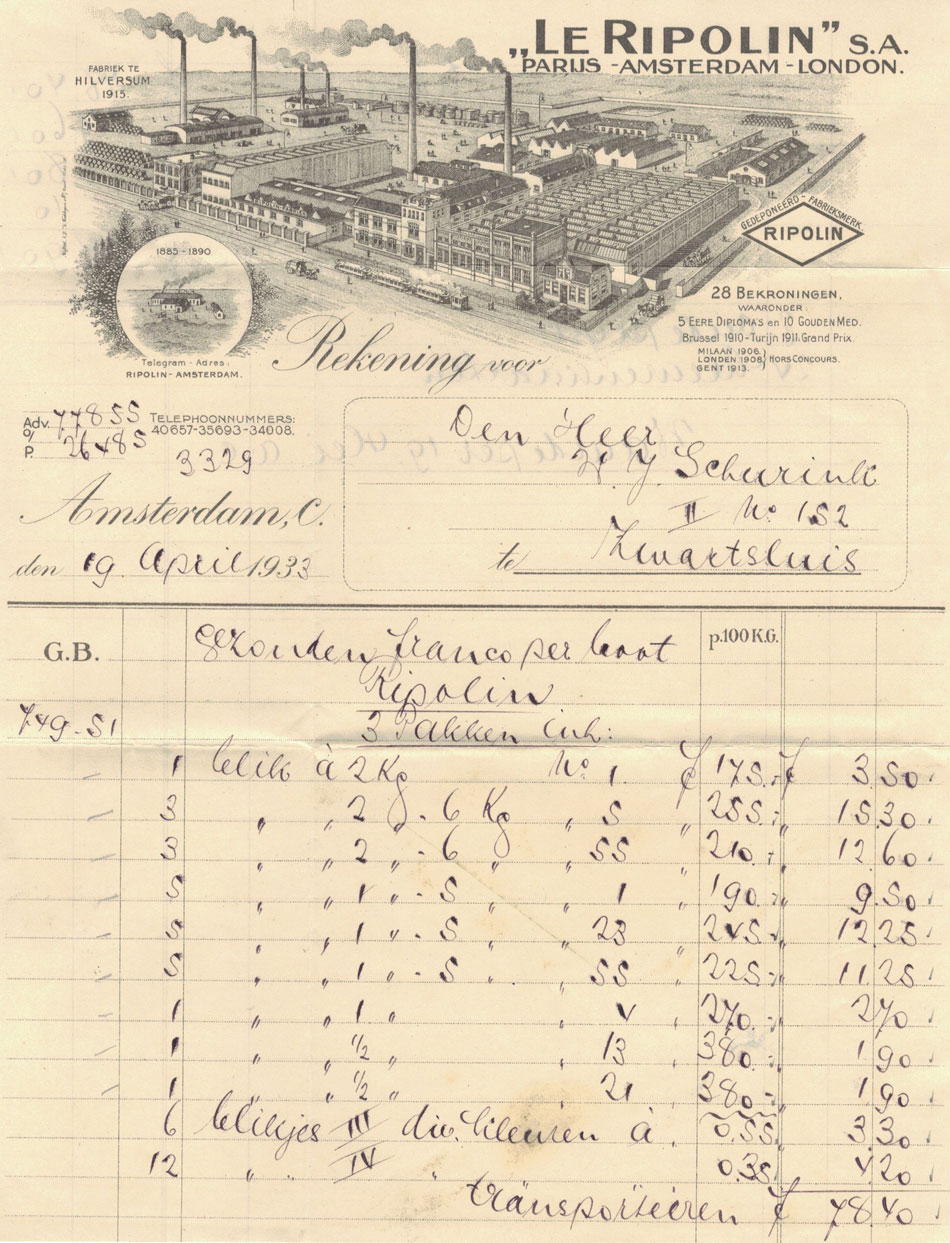 „LE RIPOLIN” S.A.
PARIJS - AMSTERDAM - LONDON.
FABRIEK TE
HILVERSUM
1915.
GEDEPONEERD - FABRIEKSMERK
RIPOLIN
1885 - 1890
28 BEKRONINGEN,
WAARONDER:
5 EERE DIPLOMA'S en 10 GOUDEN MED.
Brussel 1910 - Turijn 1911. Grand Prix.
MILAAN 1906.
LONDEN 1908. HORS CONCOURS.
GENT 1913.
Telegram - Adres:
RIPOLIN - AMSTERDAM.
Rekening voor
Adv. 77855
o/
P. 26485
TELEPHOONNUMMERS:
40657-35693-34008.
3329
Den Heer
W. J. Schurink
II No 152
te Zwartsluis
Amsterdam, C.
den 19 April 1933
G.B. gezonden franco per boot p. 100 K.G.
Ripolin
749-51 3 Pakken inh:
1 blik à 2 Kg No 1. f 175.- f 3.50
3 „ „ 2 „ - 6 Kg „ 5 „ 255.- „ 15.30
3 „ „ 2 „ - 6 „ „ 55 „ 210.- „ 12.60
5 „ „ 1 „ - 5 „ „ 1 „ 190.- „ 9.50
5 „ „ 1 „ - 5 „ „ 23 „ 245.- „ 12.25
5 „ „ 1 „ - 5 „ „ 55 „ 225.- „ 11.25
1 „ „ 1 „ „ V „ 270.- „ 2.70
1 „ „ 1/2 „ „ 13 „ 380.- „ 1.90
1 „ „ 1/2 „ „ 21 „ 380.- „ 1.90
6 blikjes III div. kleuren à 0.55 3.30
12 „ „ IV „ 0.35 4.20
transporteeren f 78.40